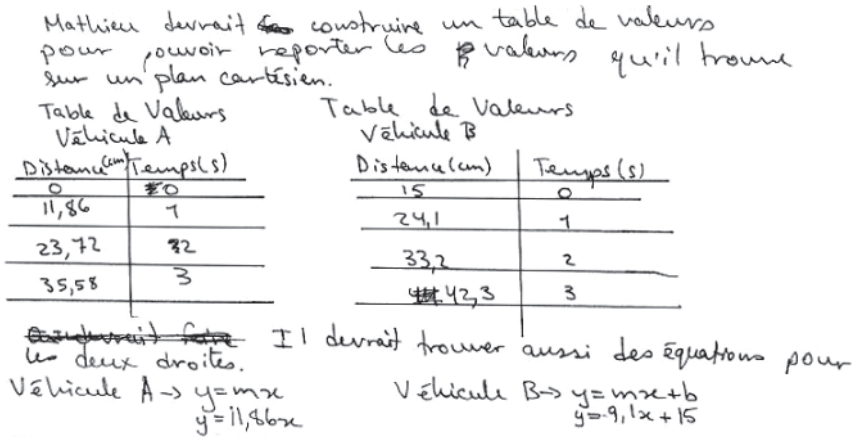 Mathieu devrait construire un table de valeurs
pour pouvoir reporter les valeurs qu'il trouve
sur un plan cartésien.
Table de Valeurs
Véhicule A
Distance (cm) Temps(s)
0 0
11,86 1
23,72 2
35,58 3
Table de Valeurs
Véhicule B
Distance (cm) Temps (s)
15 0
24,1 1
33,2 2
42,3 3
Il devrait trouver aussi des équations pour
les deux droites.
Véhicule A → y=mx
y=11,86x
Véhicule B → y=mx+b
y=9,1x+15